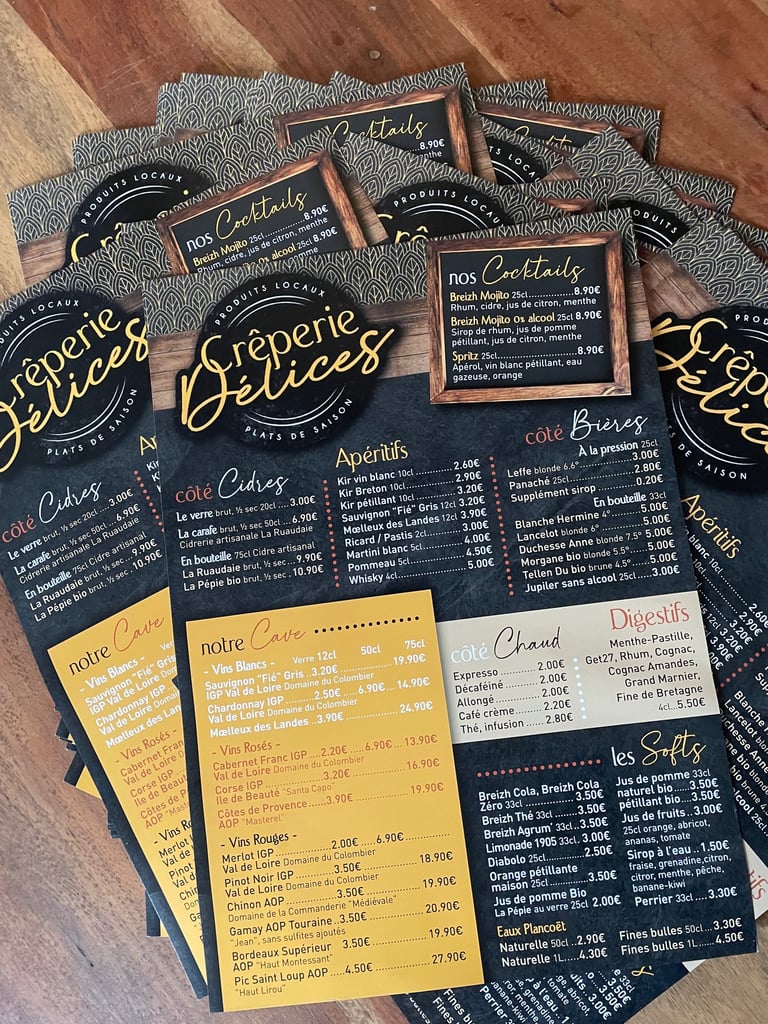 PRODUITS LOCAUX
Crêperie
Délices
PLATS DE SAISON
nos Cocktails
Breizh Mojito 25cl..............8.90€
Rhum, cidre, jus de citron, menthe
Breizh Mojito 0% alcool 25cl 8.90€
Sirop de rhum, jus de pomme
pétillant, jus de citron, menthe
Spritz 25cl....................8.90€
Apérol, vin blanc pétillant, eau
gazeuse, orange
côté Cidres
Le verre brut, ½ sec 20cl ...3.00€
La carafe brut, ½ sec 50cl ..6.90€
Cidrerie artisanale La Ruaudaie
En bouteille 75cl Cidre artisanal
La Ruaudaie brut, ½ sec ..9.90€
La Pépie bio brut, ½ sec . 10.90€
Apéritifs
Kir vin blanc 10cl ............2.60€
Kir Breton 10cl ...............2.90€
Kir pétillant 10cl ............3.20€
Sauvignon "Fié" Gris 12cl 3.20€
Mœlleux des Landes 12cl 3.90€
Ricard / Pastis 2cl ..........3.00€
Martini blanc 5cl .............4.00€
Pommeau 5cl ...................4.50€
Whisky 4cl ....................5.00€
côté Bières
À la pression 25cl
Leffe blonde 6.6° ..............3.00€
Panaché 25cl ...................2.80€
Supplément sirop ...............0.20€
En bouteille 33cl
Blanche Hermine 4° ............5.00€
Lancelot blonde 6° ............5.00€
Duchesse Anne blonde 7.5° 5.00€
Morgane bio blonde 5.5° .....5.00€
Tellen Du bio brune 4.5° ....5.00€
Jupiler sans alcool 25cl ....3.00€
notre Cave
- Vins Blancs - Verre 12cl 50cl 75cl
Sauvignon "Fié" Gris ..3.20€ ........ 19.90€
IGP Val de Loire Domaine du Colombier
Chardonnay IGP ........ 2.50€ .....6.90€ .. 14.90€
Val de Loire Domaine du Colombier
Mœlleux des Landes ..3.90€ .......... 24.90€
- Vins Rosés -
Cabernet Franc IGP ....2.20€ ......6.90€ ... 13.90€
Val de Loire Domaine du Colombier
Corse IGP ..............3.20€ ........ 16.90€
Ile de Beauté "Santa Capo"
Côtes de Provence .....3.90€ ........ 19.90€
AOP "Masterel"
- Vins Rouges -
Merlot IGP ............. 2.00€ .....6.90€
Val de Loire Domaine du Colombier
Pinot Noir IGP .........3.50€ ......... 18.90€
Val de Loire Domaine du Colombier
Chinon AOP ............. 3.50€ ......... 19.90€
Domaine de la Commanderie "Médiévale"
Gamay AOP Touraine ..3.50€ ......... 20.90€
"Jean", sans sulfites ajoutés
Bordeaux Supérieur 3.50€ ......... 19.90€
AOP "Haut Montessant"
Pic Saint Loup AOP .... 4.50€ ......... 27.90€
"Haut Lirou"
côté Chaud
Expresso .............. 2.00€
Décaféiné ............. 2.00€
Allongé ............... 2.00€
Café crème ............ 2.20€
Thé, infusion ......... 2.80€
Digestifs
Menthe-Pastille,
Get27, Rhum, Cognac,
Cognac Amandes,
Grand Marnier,
Fine de Bretagne
4cl...5.50€
les Softs
Breizh Cola, Breizh Cola
Zéro 33cl ...............3.50€
Breizh Thé 33cl .........3.50€
Breizh Agrum' 33cl ..3.50€
Limonade 1905 33cl .3.00€
Diabolo 25cl ............2.50€
Orange pétillante
maison 25cl .............3.50€
Jus de pomme Bio
La Pépie au verre 25cl 2.00€
Eaux Plancoët
Naturelle 50cl ..2.90€
Naturelle 1L ....4.30€
Jus de pomme 33cl
naturel bio ....3.50€
pétillant bio ..3.50€
Jus de fruits ... 3.00€
25cl orange, abricot,
ananas, tomate
Sirop à l'eau .. 1.50€
fraise, grenadine, citron,
citron, menthe, pêche,
banane-kiwi
Perrier 33cl ....3.30€
Fines bulles 50cl ....3.30€
Fines bulles 1L......4.50€